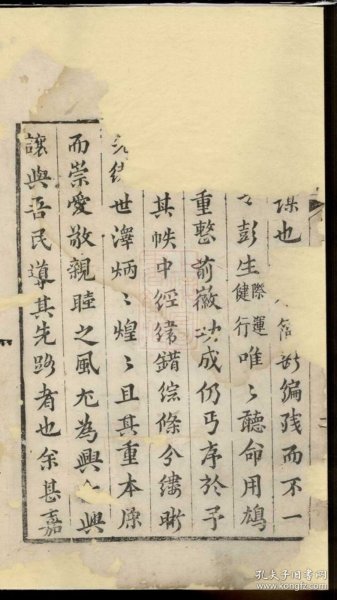 也 編残而不一
彭生際運健行唯〻聽命用鳩
重整前徽功成仍丐序於予
其帙中經緯錯綜條分縷晰
世澤炳〻煌〻且其重本原
而崇愛敬親睦之風尤為興 興
讓與吾民導其先路者也余甚嘉
孔夫子旧书网
www.kongfz.com